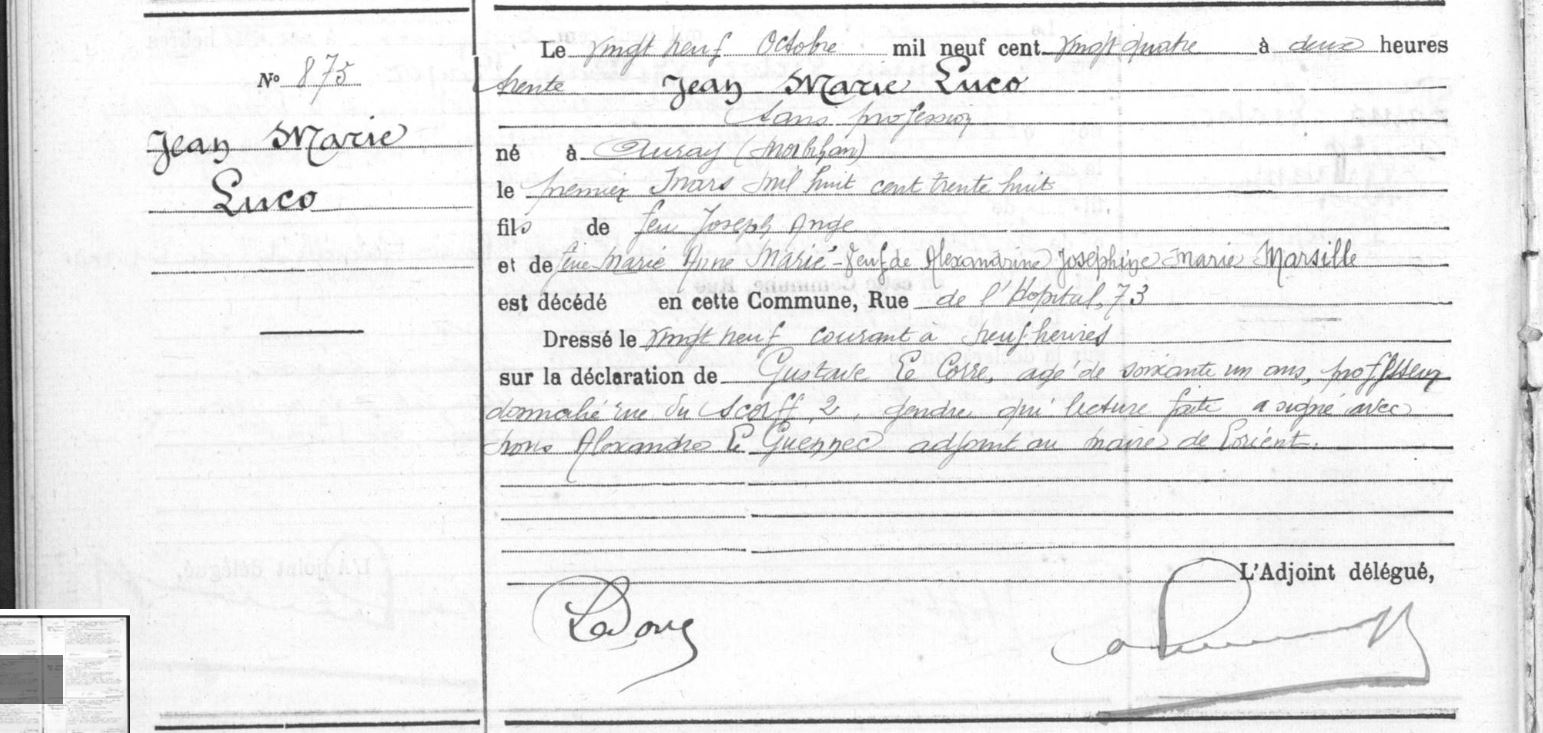 N° 875
Jean Marie
Luco
Le vingt neuf Octobre mil neuf cent vingt quatre à deux heures
trente Jean Marie Luco
Sans profession
né à Auray (Morbihan)
le premier Mars mil huit cent trente huit
fils de feu Joseph Ange
et de feue Marie Anne Marie - Veuf de Alexandrine Josephine Marie Marsille
est décédé en cette Commune, Rue de l'Hopital, 73
Dressé le vingt neuf courant à neuf heures
sur la déclaration de Gustave Le Corre, agé de soixante un ans, professeur
domicilié rue du Scorff, 2, gendre qui lecture faite a signé avec
nous Alexandre Le Guennec adjoint au maire de Lorient.
L'Adjoint délégué,